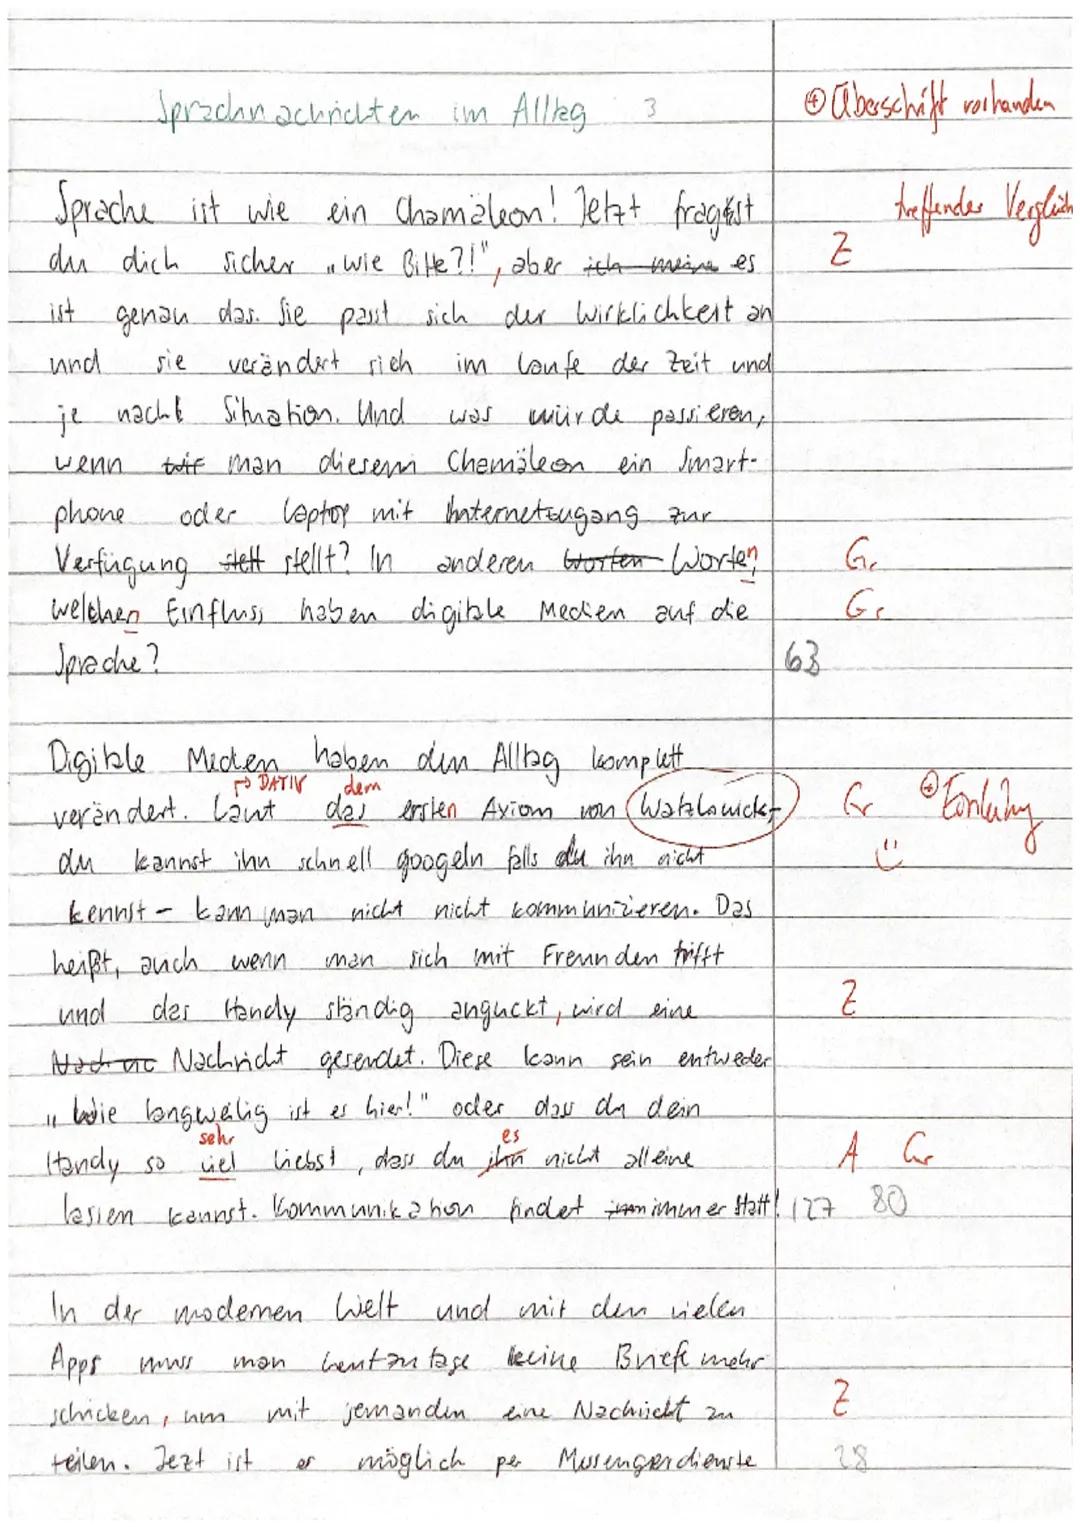 Sprachnachrichten im Alltag 3
⊕ Überschrift vorhanden
Sprache ist wie ein Chamäleon! Jetzt fragst
treffender Vergleich
du dich sicher „wie Bitte?!", aber ich meine es
Z
ist genau das. Sie passt sich der Wirklichkeit an
und sie verändert sich im Laufe der Zeit und
je nach Situation. Und was würde passieren,
wenn wir man diesem Chamäleon ein Smart-
phone oder Laptop mit Internetzugang zur
Verfügung stellt? In anderen Worten Worten
Gr
welchen Einfluss haben digitale Medien auf die
Gr
Sprache?
63
Digitale Medien haben den Alltag komplett
→ DATIV dem
verändert. Laut das ersten Axiom von Watzlawick-
Gr ⊕ Einleitung
du kannst ihn schnell googeln falls du ihn nicht
kennst - kann man nicht nicht kommunizieren. Das
heißt, auch wenn man sich mit Freunden trifft
und das Handy ständig anguckt, wird eine
Z
Nachricht gesendet. Diese kann sein entweder
„Wie langweilig ist es hier!" oder dass du dein
sehr es
Handy so viel liebst, dass du ihn nicht alleine
A Gr
lassen kannst. Kommunikation findet immer statt!
127 80
In der modernen Welt und mit den vielen
Apps muss man heutzutage keine Briefe mehr
schicken, um mit jemanden eine Nachricht zu
Z
teilen. Jezt ist es möglich per Messengerdienste
28